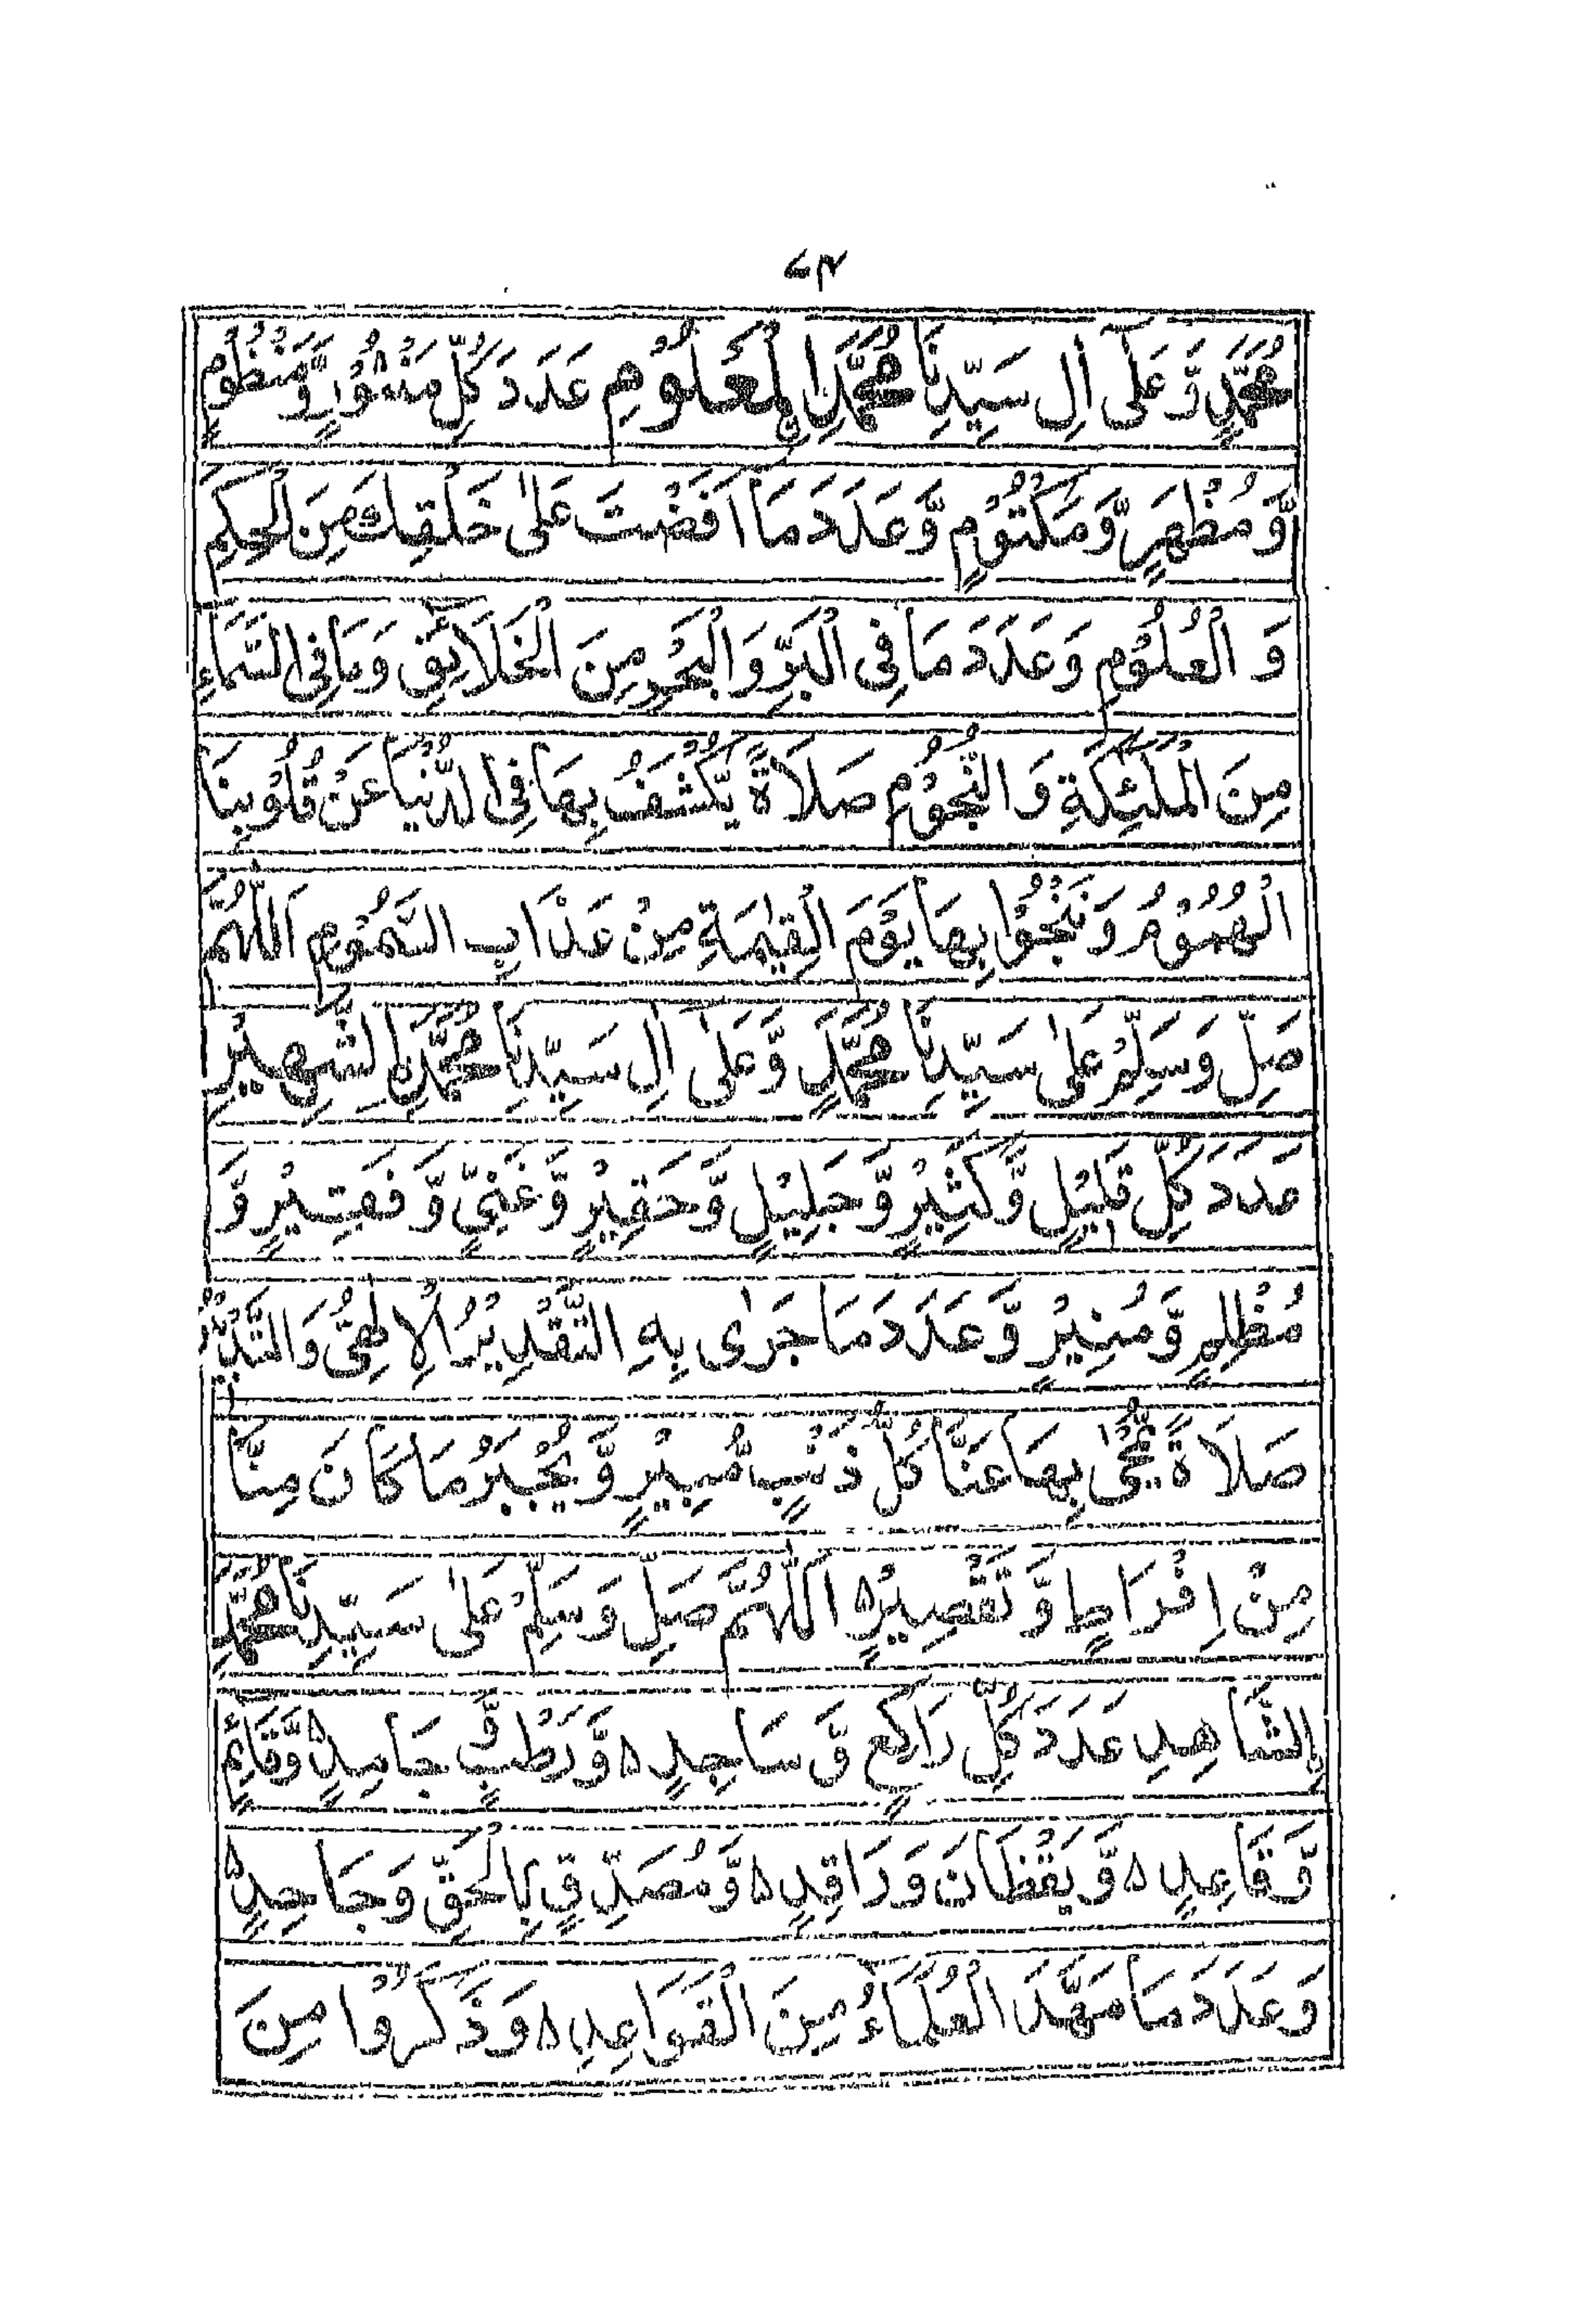 ۷۴
مُحَمَّدٍ وَّعَلٰى اٰلِ سَيِّدِنَا مُحَمَّدِ ۨالْمَعْلُوْمِ عَدَدَ كُلِّ مَنْثُوْرٍ وَّمَنْظُوْمٍ
وَّمُظْهَرٍ وَّمَكْتُوْمٍ وَّعَدَدَ مَا اَفَضْتَ عَلٰى خَلْقِكَ مِنَ الْحِكَمِ
وَ الْعُلُوْمِ وَعَدَدَ مَا فِى الْبَرِّ وَالْبَحْرِ مِنَ الْخَلَآئِقِ وَمَا فِى السَّمَاءِ
مِنَ الْمَلٰٓئِكَةِ وَ النُّجُوْمِ صَلَاةً يُّكْشَفُ بِهَا فِى الدُّنْيَا عَنْ قُلُوْبِنَا
الْهُمُوْمُ وَنَنْجُوْا بِهَا يَوْمَ الْقِيٰمَةِ مِنْ عَذَابِ السَّمُوْمِ اَللّٰهُمَّ
صَلِّ وَسَلِّمْ عَلٰى سَيِّدِنَا مُحَمَّدٍ وَّعَلٰى اٰلِ سَيِّدِنَا مُحَمَّدِ ۨالشَّهِيْرِ
عَدَدَ كُلِّ قَلِيْلٍ وَّكَثِيْرٍ وَّجَلِيْلٍ وَّحَقِيْرٍ وَّغَنِيٍّ وَّفَقِيْرٍ وَّ
مُظْلِمٍ وَّمُنِيْرٍ وَّعَدَدَ مَا جَرٰى بِهِ التَّقْدِيْرُ الْاِلٰهِيُّ وَالتَّدْبِيْرُ
صَلَاةً يُّمْحٰى بِهَا عَنَّا كُلُّ ذَنْبٍ مُّبِيْرٍ وَّيُجْبَرُ مَا كَانَ مِنَّا
مِنْ اِفْرَاطٍ وَّتَقْصِيْرٍ۵ اَللّٰهُمَّ صَلِّ وَسَلِّمْ عَلٰى سَيِّدِنَا مُحَمَّدِ
ۨالشَّاهِدِ عَدَدَ كُلِّ رَاكِعٍ وَّ سَاجِدٍ۵ وَّرَطْبٍ وَّجَامِدٍ۵ وَّقَائِمٍ
وَّقَاعِدٍ۵ وَّيَقْظَانَ وَرَاقِدٍ۵ وَّمُصَدِّقٍ بِالْحَقِّ وَجَاحِدٍ۵
وَعَدَدَ مَا مَهَّدَ الْعُلَمَاءُ مِنَ الْقَوَاعِدِ۵ وَذَكَرُوْا مِنَ